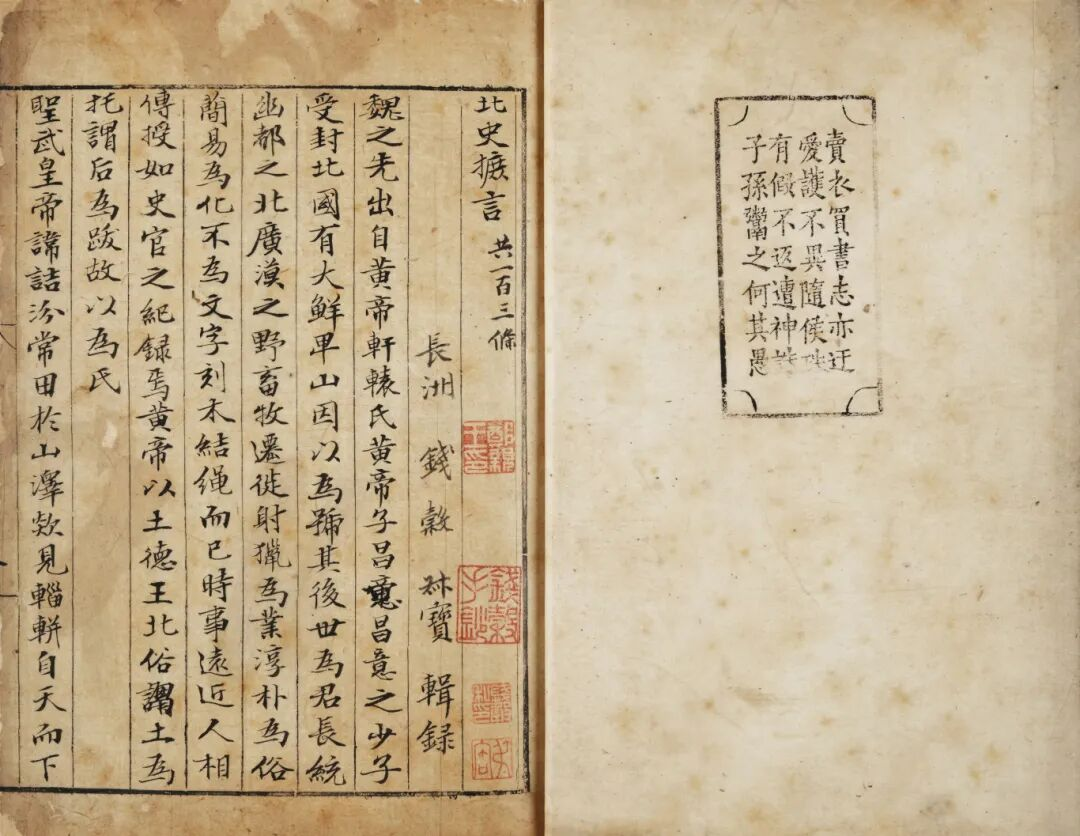 賣衣買書志亦迂
愛護不異隨侯珠
有假不返遭神誅
子孫鬻之何其愚
北史摭言 共一百三條
長洲 錢穀 叔寶 輯録
魏之先出自黄帝軒轅氏黄帝子昌意昌意之少子
受封北國有大鮮卑山因以為號其後世為君長統
幽都之北廣漠之野畜牧遷徙射獵為業淳朴為俗
簡易為化不為文字刻木結繩而已時事遠近人相
傳授如史官之紀録焉黄帝以土德王北俗謂土為
托謂后為跋故以為氏
聖武皇帝諱詰汾常田於山澤欻見輜軿自天而下
錢穀手鈔